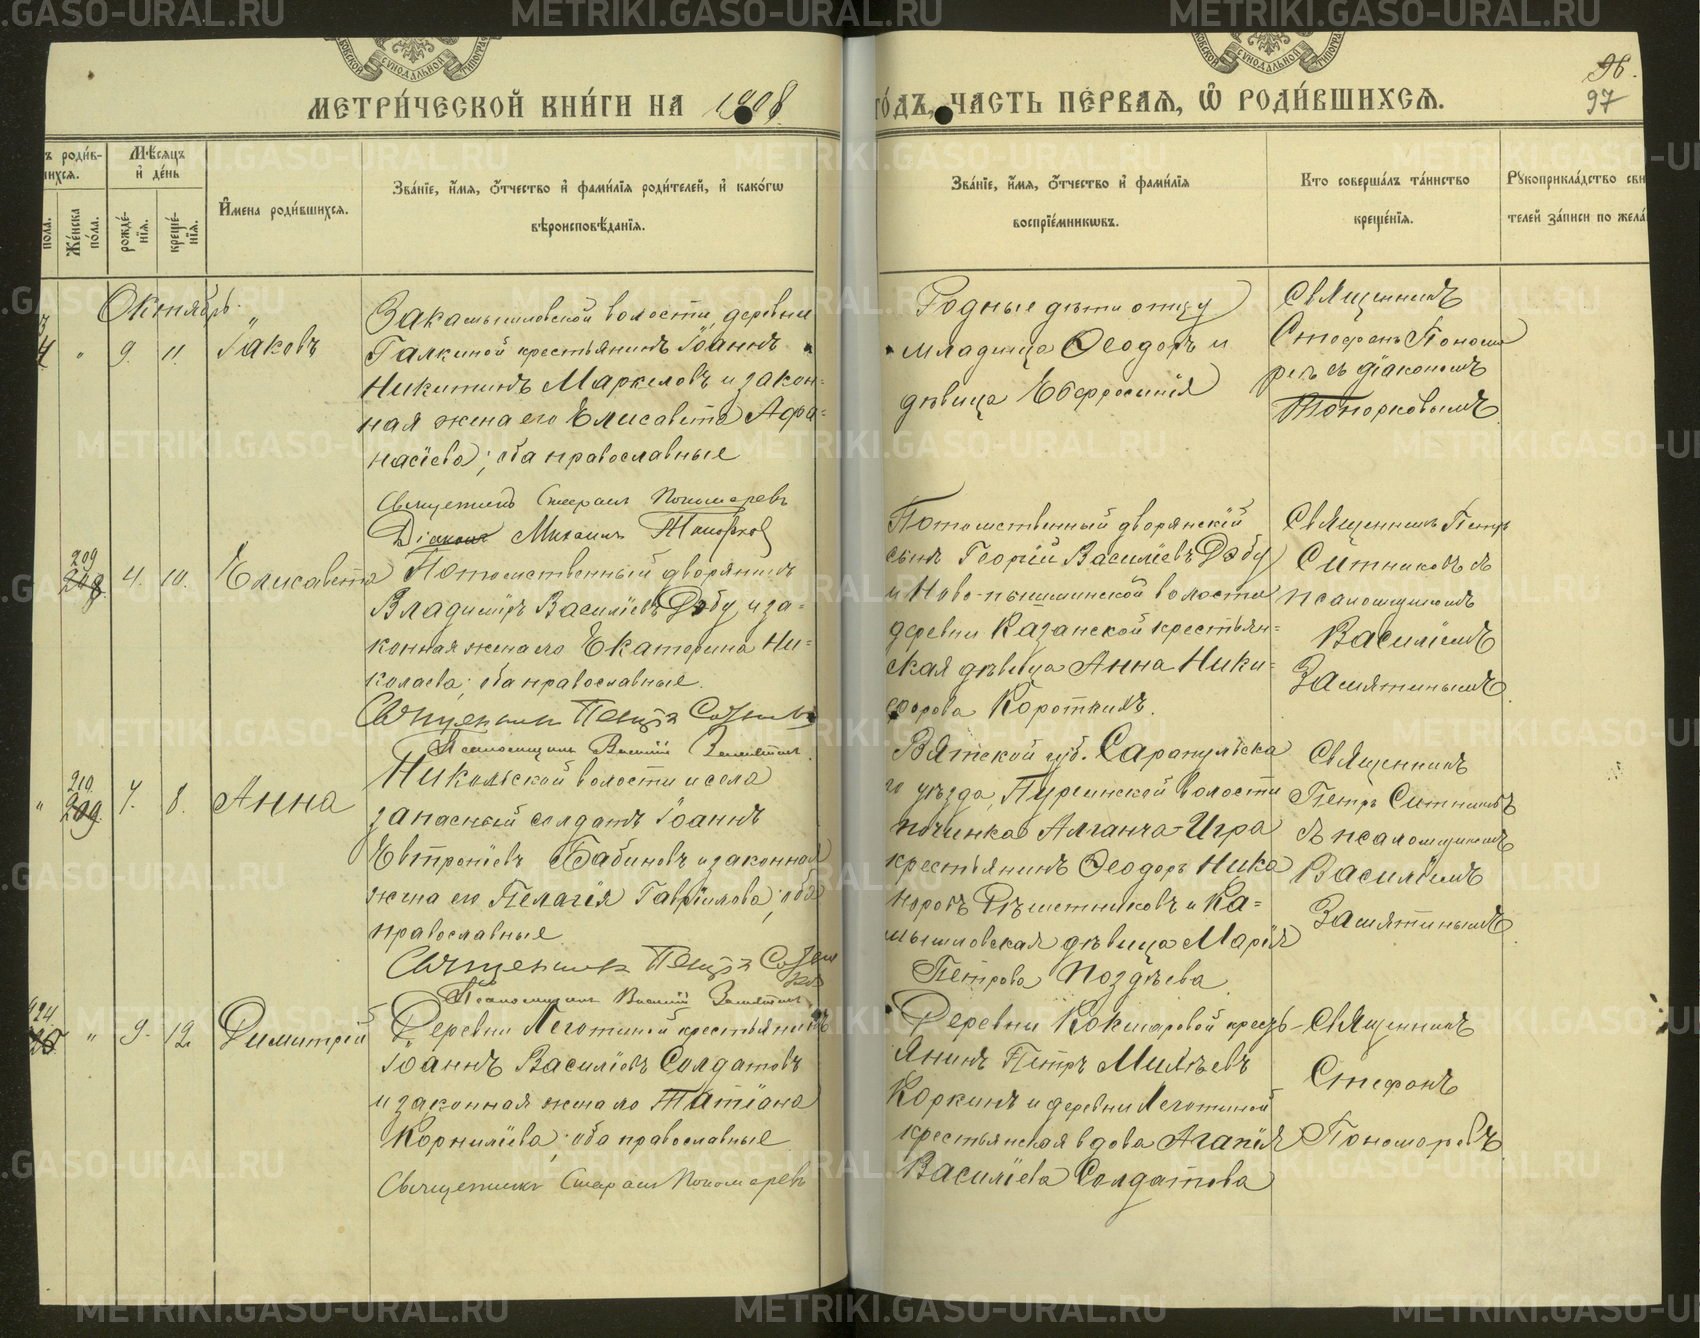 МЕТРИ́ЧЕСКОЙ КНИ́ГИ НА 1908
ГО́ДЪ, ЧАСТЬ ПЕ́РВАѦ, Ѽ РОДИ́ВШИХСѦ.
96.
97
ъ роди́в-
шихся.
Мѣ́сяцъ
и҆ де́нь
пола.
Же́нска
по́ла.
рожде́-
нїѧ.
креще́-
нїѧ.
И҆мена роди́вшихся.
Зва́нїе, и҆́мя, ѻ҆́тчество и҆ фами́лїѧ роди́телей, и҆ како́гѡ
вѣроисповѣ́данїѧ.
Зва́нїе, и҆́мя, ѻ҆́тчество и҆ фами́лїѧ
воспрїе́мникѡвъ.
Кто соверша́лъ та́инство
креще́нїѧ.
Рꙋкоприкла́дство сви
телей за́писи по жела́
Октябрь.
" 9. 11. Іаковъ
Закамышловской волости, деревни
Галкиной крестьянинъ Іоаннъ
Никитинъ Маркеловъ и закон-
ная жена его Елисавета Афа-
насіева; оба православные
Священникъ Стефанъ Пономаревъ
Діаконъ Михаилъ Топорковъ
Родные дѣти отцу
младенца Ѳеодоръ и
дѣвица Евфросинія
Священникъ
Стефанъ Понома
ревъ съ діакономъ
Топорковымъ
209
208. 4. 10. Елисавета
Потомственный дворянинъ
Владиміръ Василіевъ Добу, и за-
конная жена его Екатерина Ни-
колаева; оба православные.
Священникъ Петръ Ситниковъ
Псаломщикъ Василій Замятинъ
Потомственный дворянскій
сынъ Георгій Василіевъ Добу
и Ново-пышминской волости
деревни Казанской крестьян-
ская дѣвица Анна Ники-
форова Короткихъ.
Священникъ Петръ
Ситниковъ съ
псаломщикомъ
Василіемъ
Замятинымъ
210.
" 209. 7. 8. Анна
Никольской волости и села
запасный солдатъ Іоаннъ
Евтропіевъ Бабиновъ и законная
жена его Пелагія Гавріилова; оба
православные
Священникъ Петръ Ситни
ковъ
Псаломщикъ Василій Замятинъ
Вятской губ. Сарапульска
го уѣзда, Пургинской волости
починка Алганча-Игра
крестьянинъ Ѳеодоръ Ника
норовъ Рѣшетниковъ и Ка-
мышловская дѣвица Марія
Петрова Поздѣева
Священникъ
Петръ Ситниковъ
съ псаломщикомъ
Василіемъ
Замятинымъ
" 9. 12. Димитрій
Деревни Леготиной крестьянинъ
Іоаннъ Василіевъ Солдатовъ
и законная жена его Татіана
Корниліева; оба православные
Священникъ Стефанъ Пономаревъ
Деревни Кокшаровой кресть-
янинъ Петръ Михѣевъ
Коркинъ и деревни Леготиной
крестьянская вдова Агапія
Василіева Солдатова
Священникъ
Стефанъ
Пономаревъ
METRIKI.GASO-URAL.RU